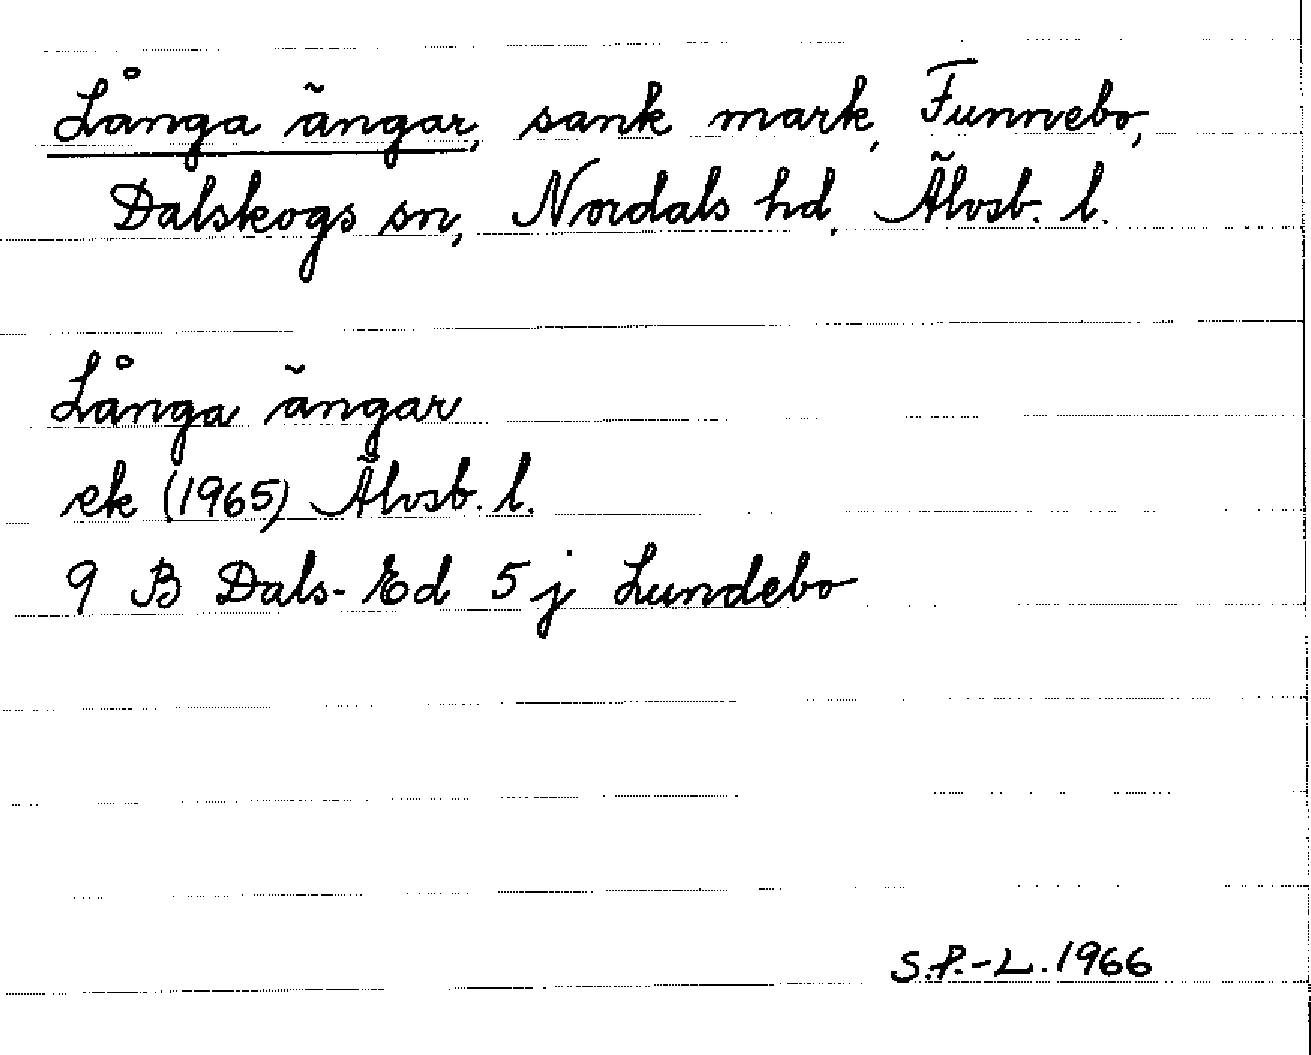 Långa ängar, sank mark, Funnebo,
Dalskogs sn, Nordals hd, Älvsb. l.
Långa ängar
ek (1965) Älvsb. l.
9 B Dals-Ed 5 j Lundebo
S.P.-L. 1966